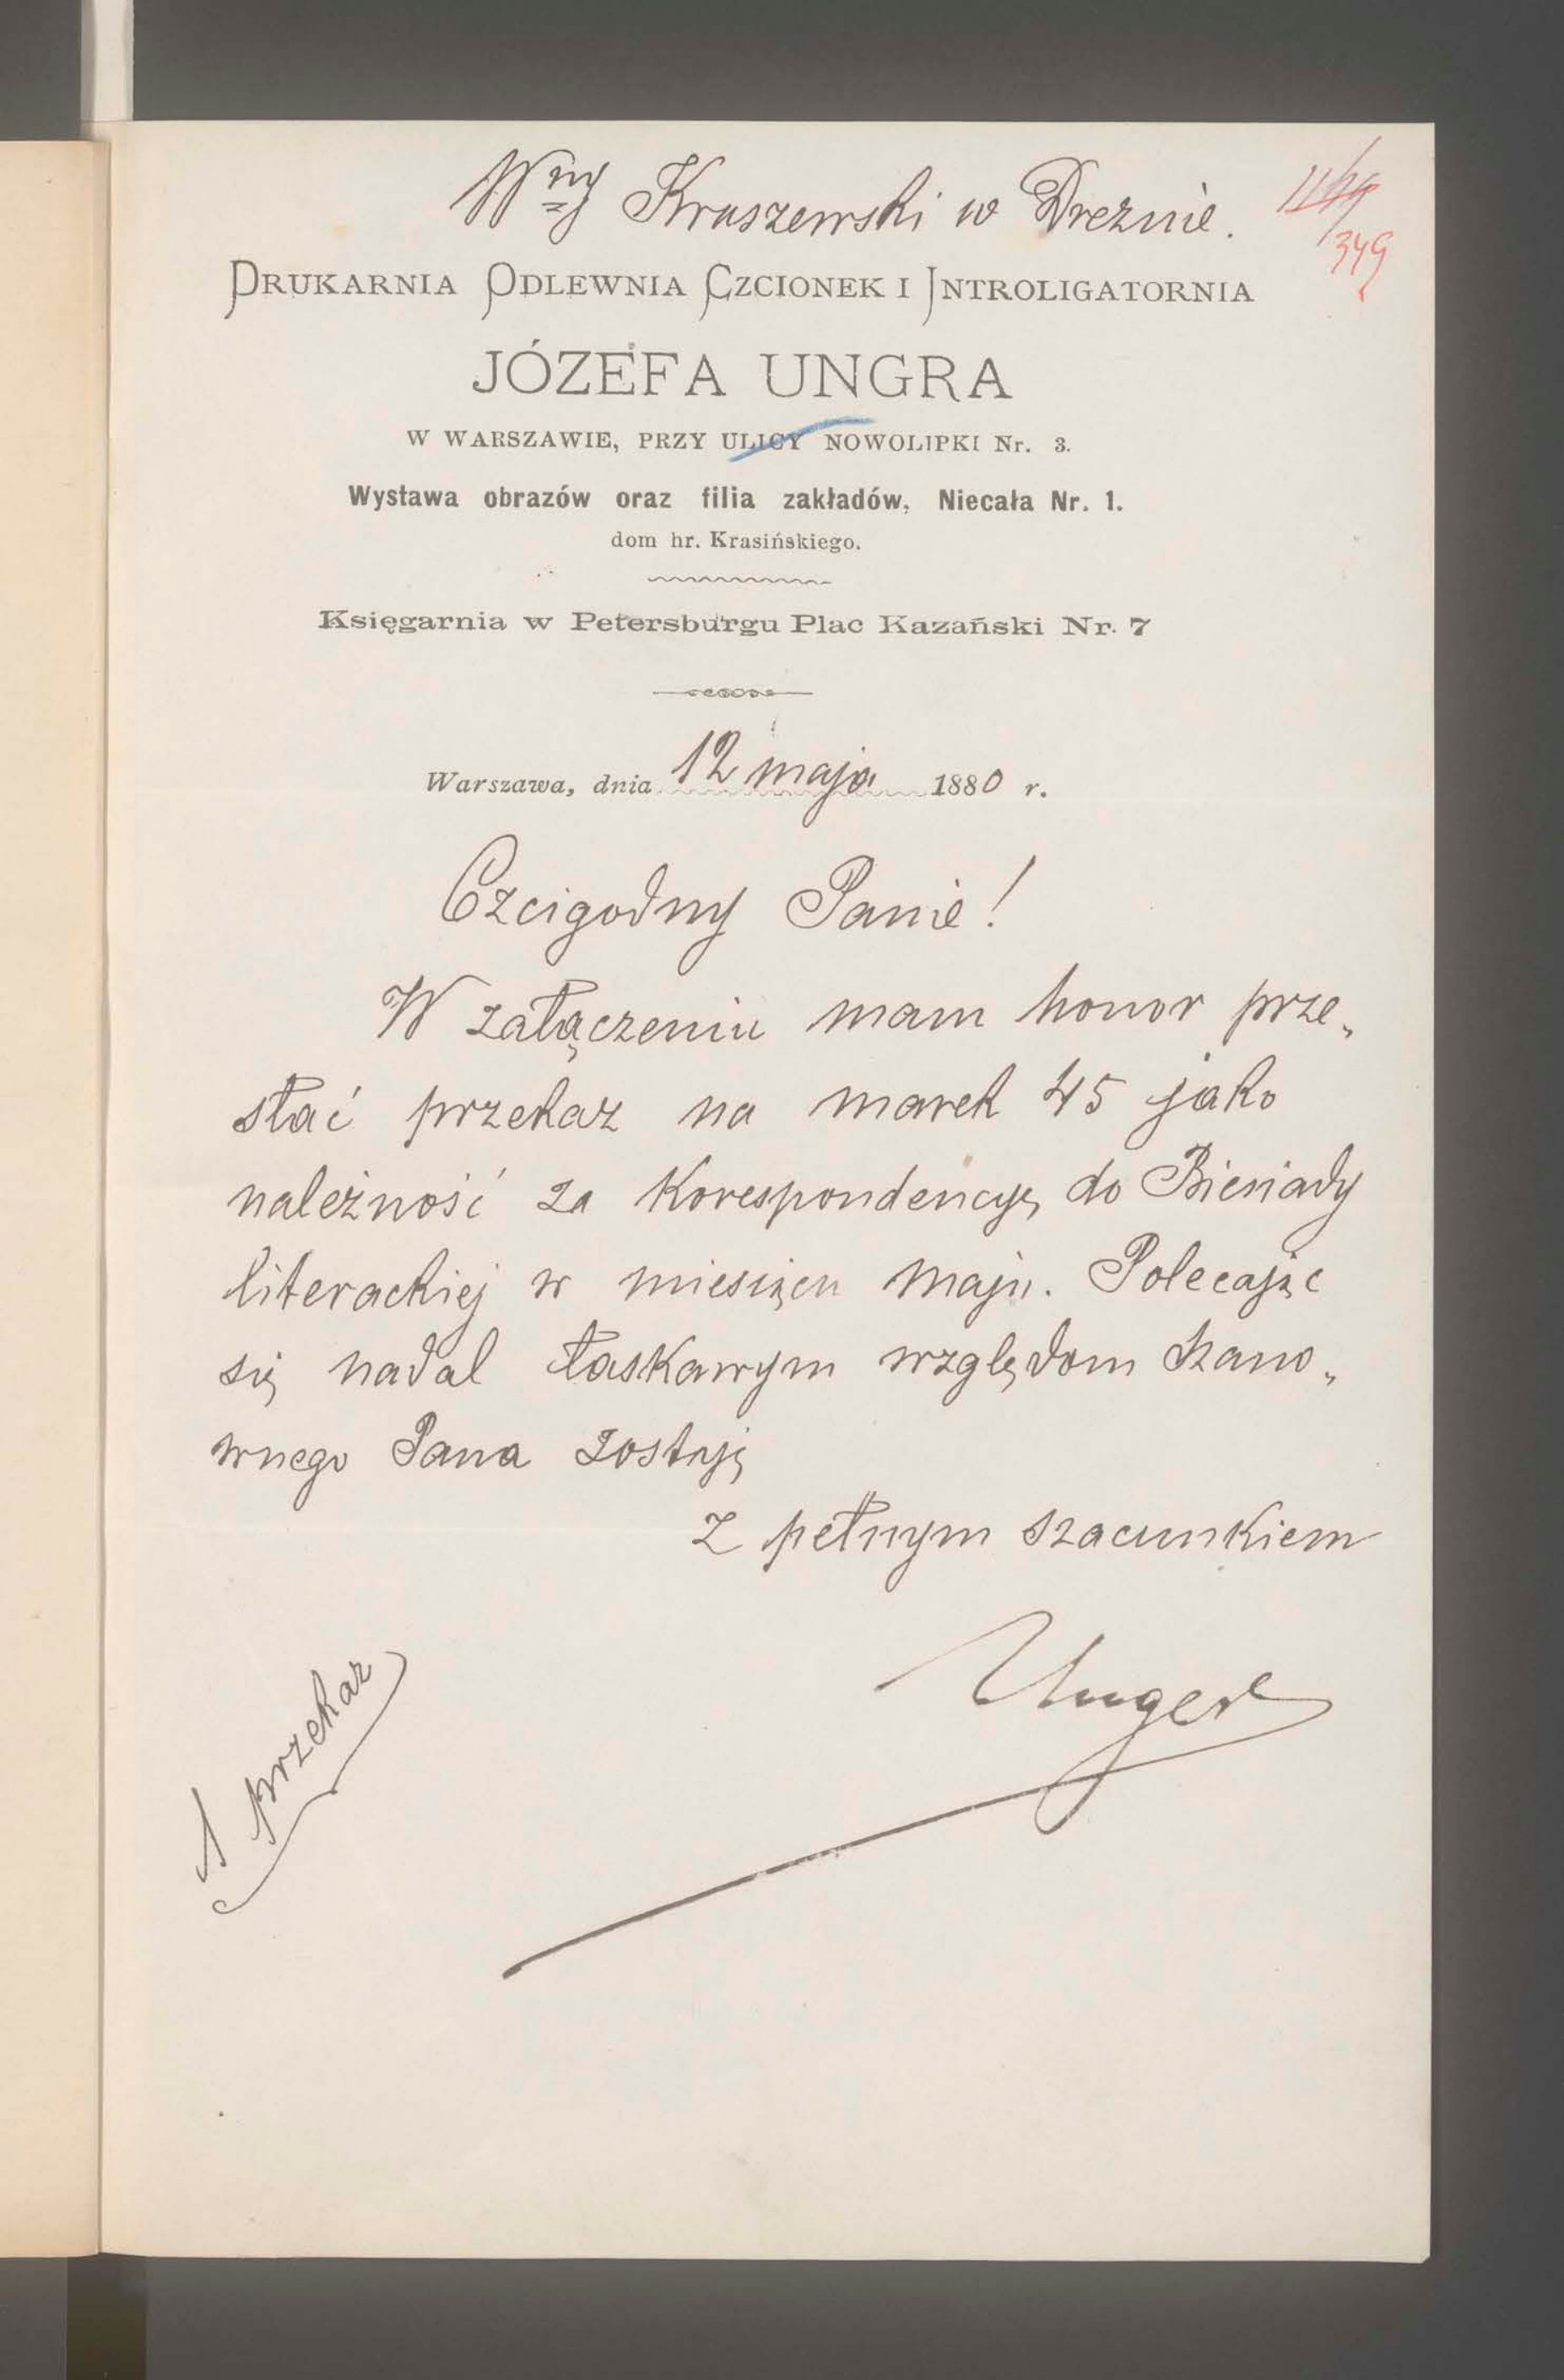 Wny Kraszewski w Dreznie.
349
DRUKARNIA ODLEWNIA CZCIONEK I INTROLIGATORNIA
JÓZEFA UNGRA
W WARSZAWIE, PRZY ULICY NOWOLIPKI Nr. 3.
Wystawa obrazów oraz filia zakładów, Niecała Nr. 1.
dom hr. Krasińskiego.
Księgarnia w Petersburgu Plac Kazański Nr. 7
Warszawa, dnia 12 maja 1880 r.
Czcigodny Panie!
W załączeniu mam honor prze„
słać przekaz na marek 45 jako
należność za Korespondencyę do Biesiady
literackiej w miesiącu maju. Polecając
się nadal łaskawym względom Szano„
wnego Pana zostaję
z pełnym szacunkiem
Unger
1 przekaz